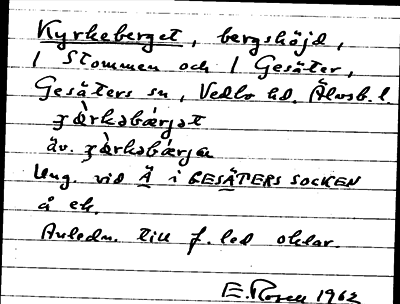 Kyrkeberget, bergshöjd,
1 Stommen och 1 Gesäter,
Gesäters sn, Vedbo hd. Älvsb. l.
ʒè̀rkəbǽrjət
äv. ʒè̀rkəbǽrja
Ung. vid Ä i GESÄTERS SOCKEN
å ek.
Anledn. till f. led oklar.
E. Rosell 1962